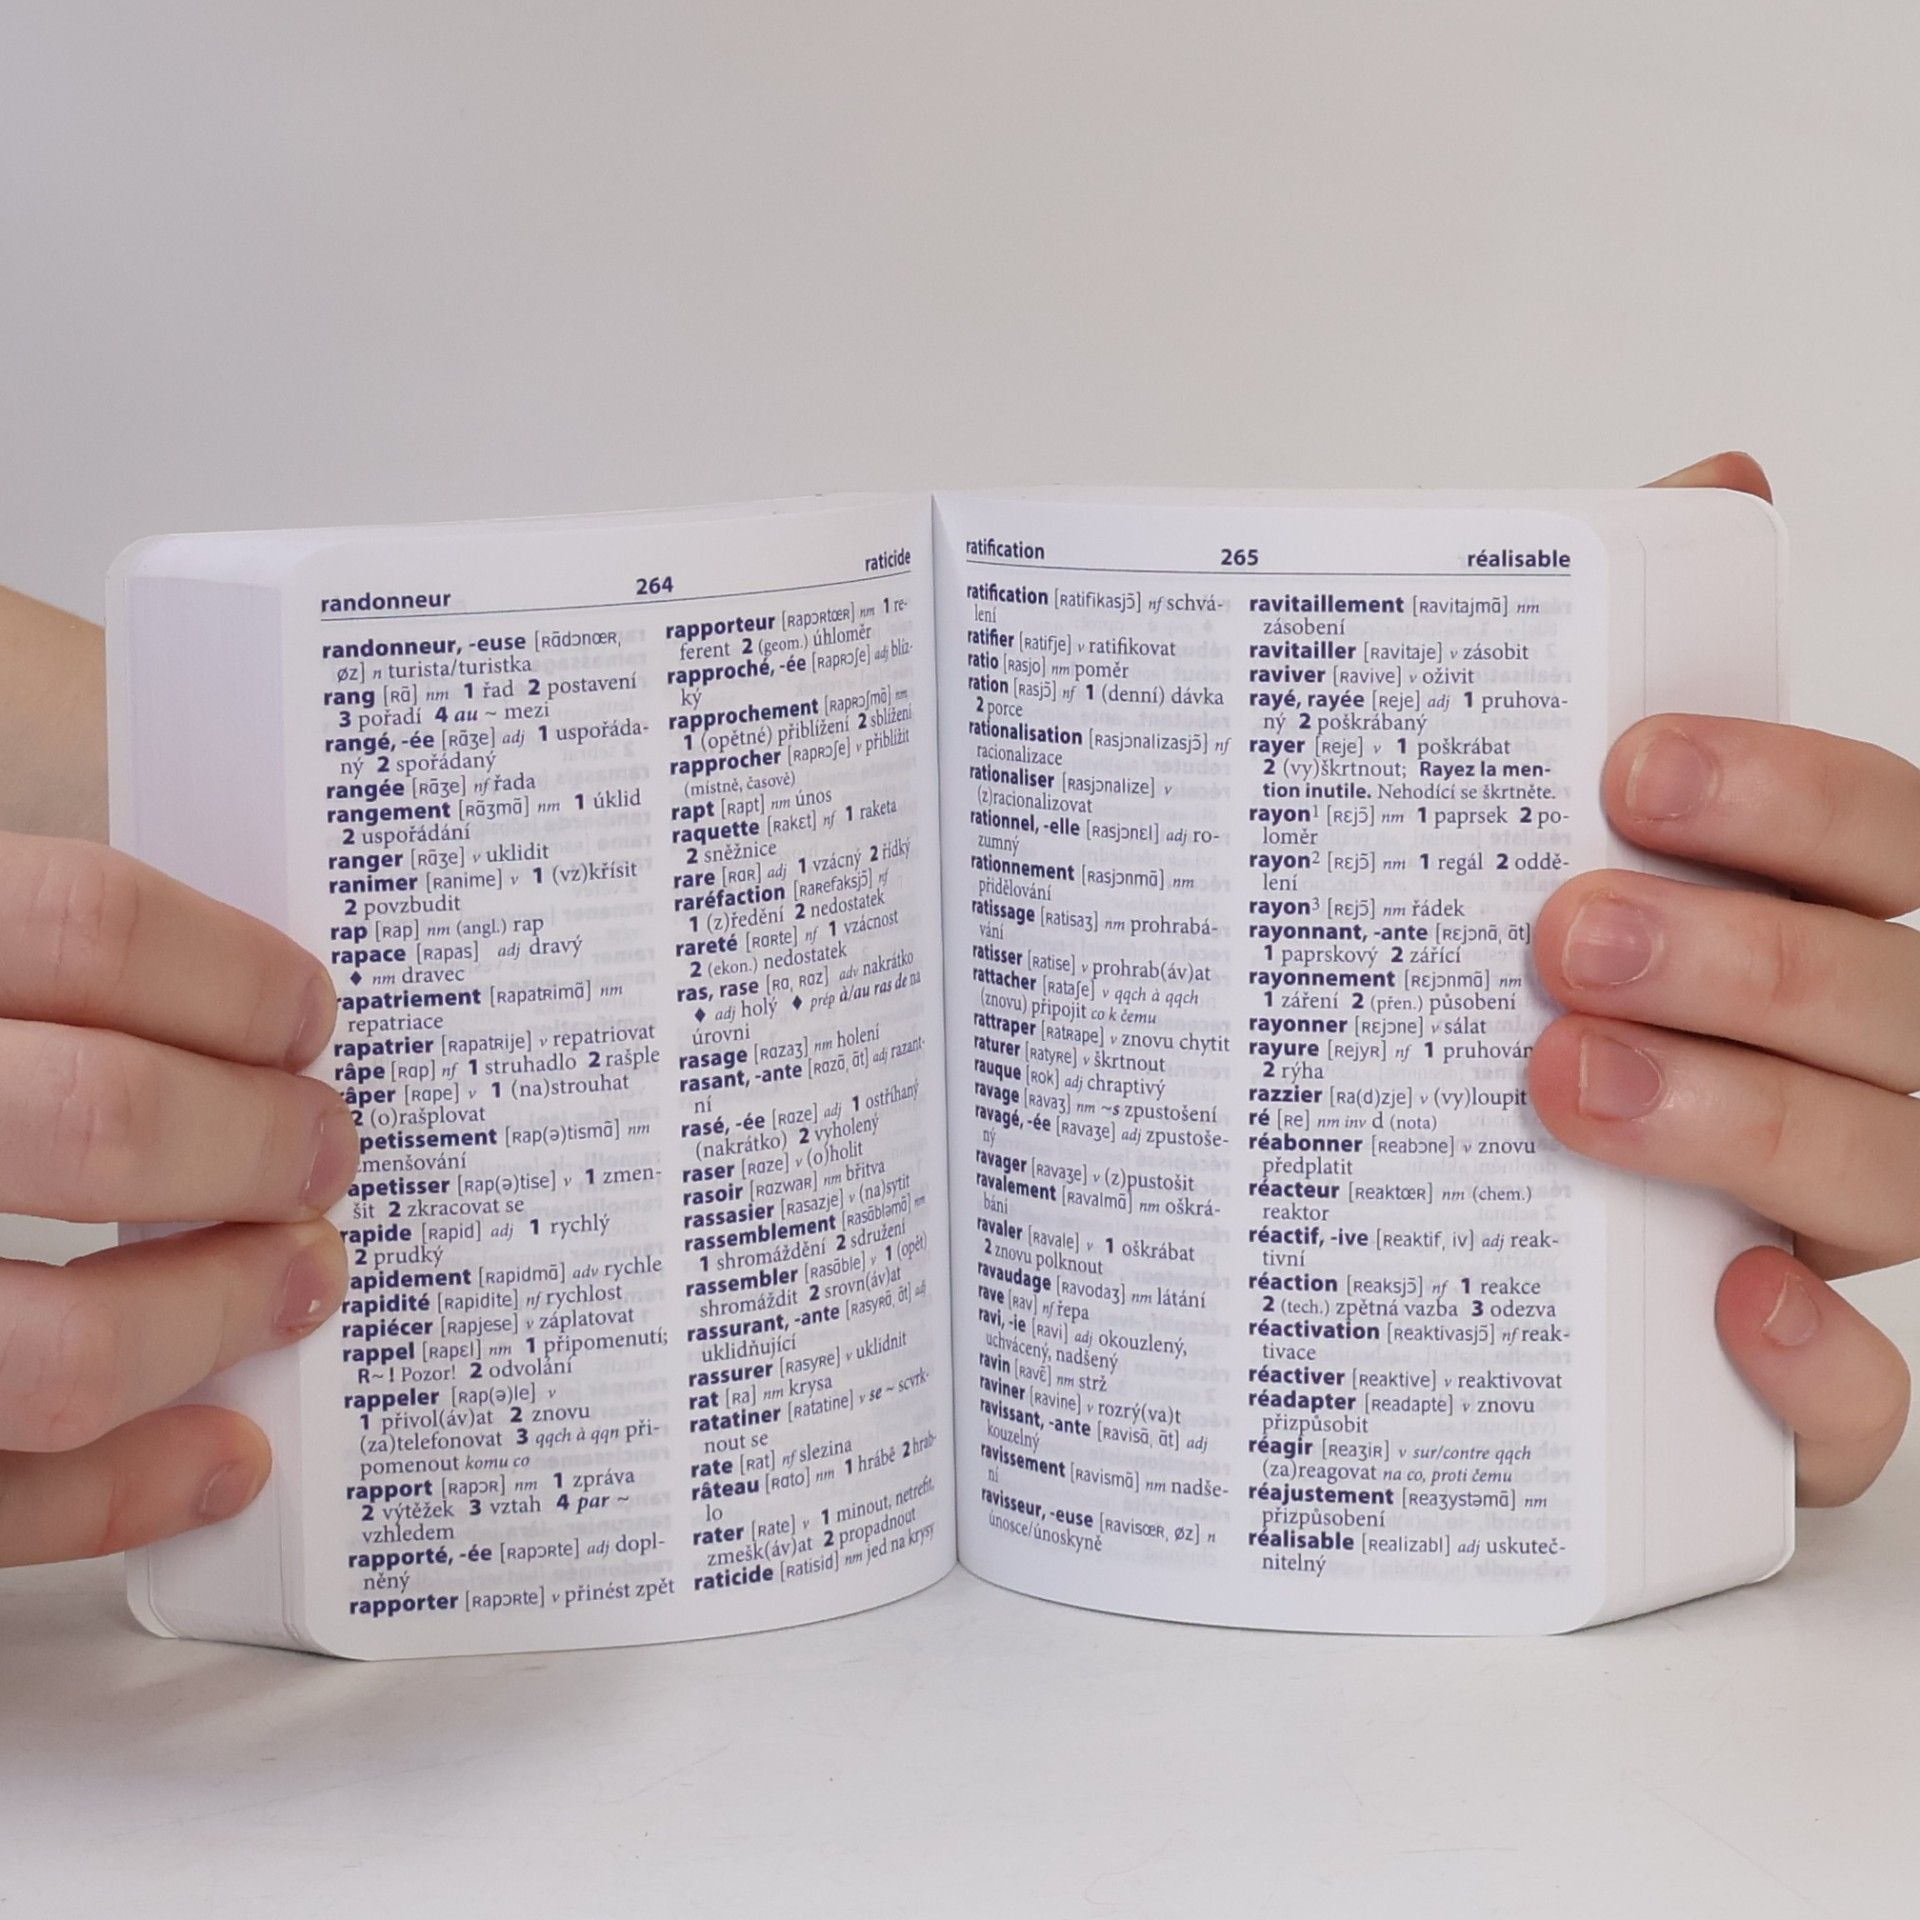 randonneur 264 raticide
randonneur, -euse [ʀɑ̃dɔnœʀ,
øz] n turista/turistka
rang [ʀɑ̃] nm 1 řad 2 postavení
3 pořadí 4 au ~ mezi
rangé, -ée [ʀɑ̃ʒe] adj 1 uspořáda-
ný 2 spořádaný
rangée [ʀɑ̃ʒe] nf řada
rangement [ʀɑ̃ʒmɑ̃] nm 1 úklid
2 uspořádání
ranger [ʀɑ̃ʒe] v uklidit
ranimer [ʀanime] v 1 (vz)křísit
2 povzbudit
rap [ʀap] nm (angl.) rap
rapace [ʀapas] adj dravý
♦ nm dravec
rapatriement [ʀapatʀimɑ̃] nm
repatriace
rapatrier [ʀapatʀije] v repatriovat
râpe [ʀɑp] nf 1 struhadlo 2 rašple
râper [ʀɑpe] v 1 (na)strouhat
2 (o)rašplovat
petissement [ʀap(ə)tismɑ̃] nm
menšování
apetisser [ʀap(ə)tise] v 1 zmen-
šit 2 zkracovat se
rapide [ʀapid] adj 1 rychlý
2 prudký
apidement [ʀapidmɑ̃] adv rychle
rapidité [ʀapidite] nf rychlost
rapiécer [ʀapjese] v záplatovat
rappel [ʀapɛl] nm 1 připomenutí;
R~! Pozor! 2 odvolání
rappeler [ʀap(ə)le] v
1 přivol(áv)at 2 znovu
(za)telefonovat 3 qqch à qqn při-
pomenout komu co
rapport [ʀapɔʀ] nm 1 zpráva
2 výtěžek 3 vztah 4 par ~
vzhledem
rapporté, -ée [ʀapɔʀte] adj dopl-
něný
rapporter [ʀapɔʀte] v přinést zpět
rapporteur [ʀapɔʀtœʀ] nm 1 re-
ferent 2 (geom.) úhloměr
rapproché, -ée [ʀapʀɔʃe] adj blíz-
ký
rapprochement [ʀapʀɔʃmɑ̃] nm
1 (opětné) přiblížení 2 sblížení
rapprocher [ʀapʀɔʃe] v přiblížit
(místně, časově)
rapt [ʀapt] nm únos
raquette [ʀakɛt] nf 1 raketa
2 sněžnice
rare [ʀɑʀ] adj 1 vzácný 2 řídký
raréfaction [ʀaʀefaksjɔ̃] nf
1 (z)ředění 2 nedostatek
rareté [ʀɑʀte] nf 1 vzácnost
2 (ekon.) nedostatek
ras, rase [ʀɑ, ʀɑz] adv nakrátko
♦ adj holý ♦ prép à/au ras de na
úrovni
rasage [ʀɑzaʒ] nm holení
rasant, -ante [ʀɑzɑ̃, ɑ̃t] adj razant-
ní
rasé, -ée [ʀɑze] adj 1 ostříhaný
(nakrátko) 2 vyholený
raser [ʀɑze] v (o)holit
rasoir [ʀɑzwaʀ] nm břitva
rassasier [ʀasazje] v (na)sytit
rassemblement [ʀasɑ̃bləmɑ̃] nm
1 shromáždění 2 sdružení
rassembler [ʀasɑ̃ble] v 1 (opět)
shromáždit 2 srovn(áv)at
rassurant, -ante [ʀasyʀɑ̃, ɑ̃t] adj
uklidňující
rassurer [ʀasyʀe] v uklidnit
rat [ʀa] nm krysa
ratatiner [ʀatatine] v se ~ scvrk-
nout se
rate [ʀat] nf slezina
râteau [ʀɑto] nm 1 hrábě 2 hrab-
lo
rater [ʀate] v 1 minout, netrefit,
zmešk(áv)at 2 propadnout
raticide [ʀatisid] nm jed na krysy
ratification 265 réalisable
ratification [ʀatifikasjɔ̃] nf schvá-
lení
ratifier [ʀatifje] v ratifikovat
ratio [ʀasjo] nm poměr
ration [ʀasjɔ̃] nf 1 (denní) dávka
2 porce
rationalisation [ʀasjɔnalizasjɔ̃] nf
racionalizace
rationaliser [ʀasjɔnalize] v
(z)racionalizovat
rationnel, -elle [ʀasjɔnɛl] adj ro-
zumný
rationnement [ʀasjɔnmɑ̃] nm
přidělování
ratissage [ʀatisaʒ] nm prohrabá-
vání
ratisser [ʀatise] v prohrab(áv)at
rattacher [ʀataʃe] v qqch à qqch
(znovu) připojit co k čemu
rattraper [ʀatʀape] v znovu chytit
raturer [ʀatyʀe] v škrtnout
rauque [ʀok] adj chraptivý
ravage [ʀavaʒ] nm ~s zpustošení
ravagé, -ée [ʀavaʒe] adj zpustoše-
ný
ravager [ʀavaʒe] v (z)pustošit
ravalement [ʀavalmɑ̃] nm oškrá-
bání
ravaler [ʀavale] v 1 oškrábat
2 znovu polknout
ravaudage [ʀavodaʒ] nm látání
rave [ʀav] nf řepa
ravi, -ie [ʀavi] adj okouzlený,
uchvácený, nadšený
ravin [ʀavɛ̃] nm strž
raviner [ʀavine] v rozrý(va)t
ravissant, -ante [ʀavisɑ̃, ɑ̃t] adj
kouzelný
ravissement [ʀavismɑ̃] nm nadše-
ní
ravisseur, -euse [ʀavisœʀ, øz] n
únosce/únoskyně
ravitaillement [ʀavitajmɑ̃] nm
zásobení
ravitailler [ʀavitaje] v zásobit
raviver [ʀavive] v oživit
rayé, rayée [ʀeje] adj 1 pruhova-
ný 2 poškrábaný
rayer [ʀeje] v 1 poškrábat
2 (vy)škrtnout; Rayez la men-
tion inutile. Nehodící se škrtněte.
rayon¹ [ʀɛjɔ̃] nm 1 paprsek 2 po-
loměr
rayon² [ʀɛjɔ̃] nm 1 regál 2 oddě-
lení
rayon³ [ʀɛjɔ̃] nm řádek
rayonnant, -ante [ʀɛjɔnɑ̃, ɑ̃t]
1 paprskový 2 zářící
rayonnement [ʀɛjɔnmɑ̃] nm
1 záření 2 (přen.) působení
rayonner [ʀɛjɔne] v sálat
rayure [ʀejyʀ] nf 1 pruhován
2 rýha
razzier [ʀa(d)zje] v (vy)loupit
ré [ʀe] nm inv d (nota)
réabonner [ʀeabɔne] v znovu
předplatit
réacteur [ʀeaktœʀ] nm (chem.)
reaktor
réactif, -ive [ʀeaktif, iv] adj reak-
tivní
réaction [ʀeaksjɔ̃] nf 1 reakce
2 (tech.) zpětná vazba 3 odezva
réactivation [ʀeaktivasjɔ̃] nf reak-
tivace
réactiver [ʀeaktive] v reaktivovat
réadapter [ʀeadapte] v znovu
přizpůsobit
réagir [ʀeaʒiʀ] v sur/contre qqch
(za)reagovat na co, proti čemu
réajustement [ʀeaʒystəmɑ̃] nm
přizpůsobení
réalisable [ʀealizabl] adj uskuteč-
nitelný